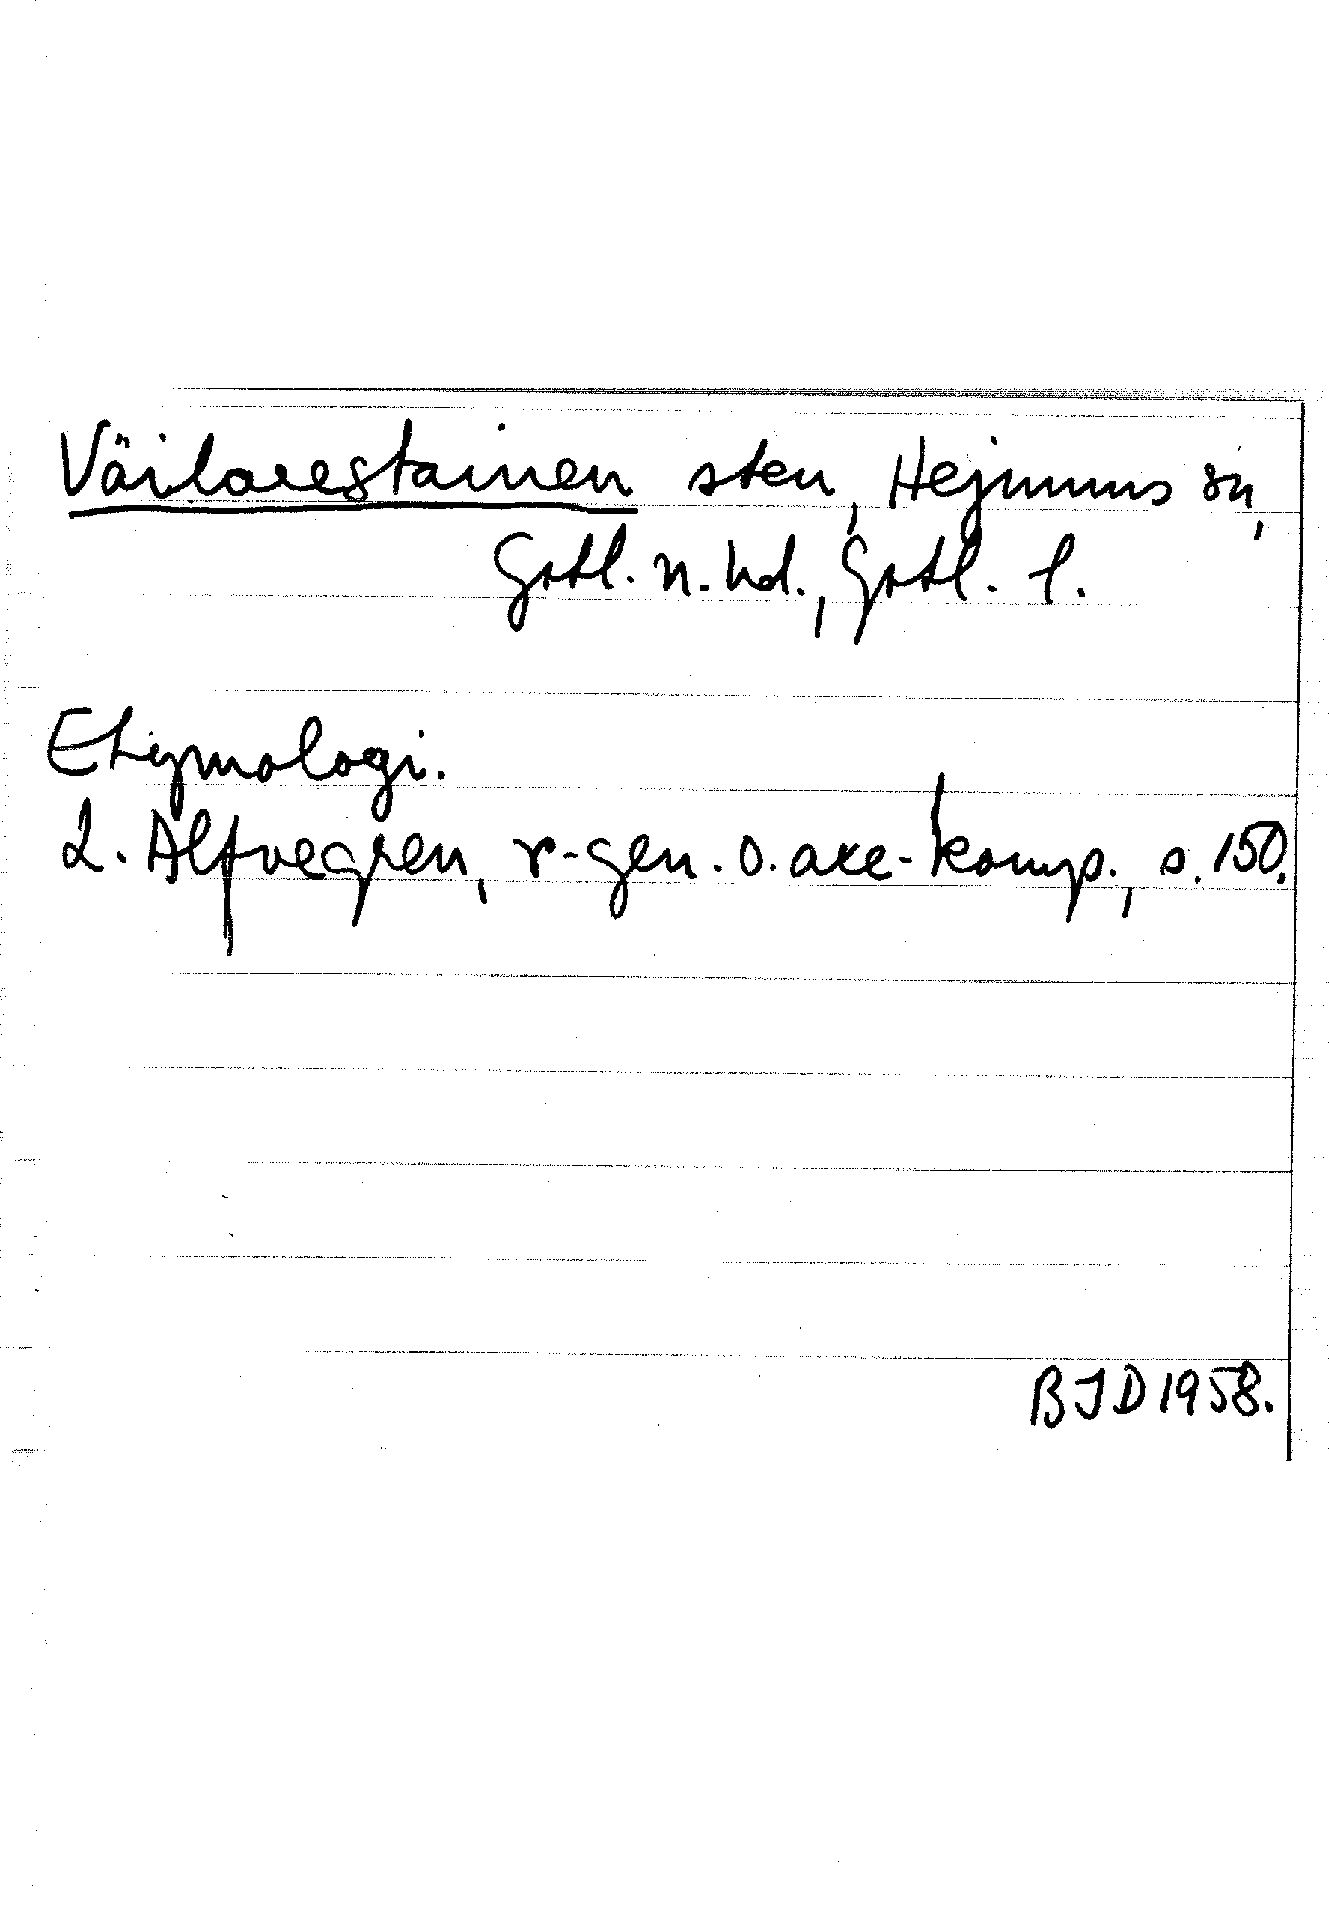 Väilarestainen sten, Hejnums sn,
Gotl. n. hd., Gotl. l.
Etymologi.
L. Alfvegren, r-gen. o. are-komp., s. 150.
BJD 1958.